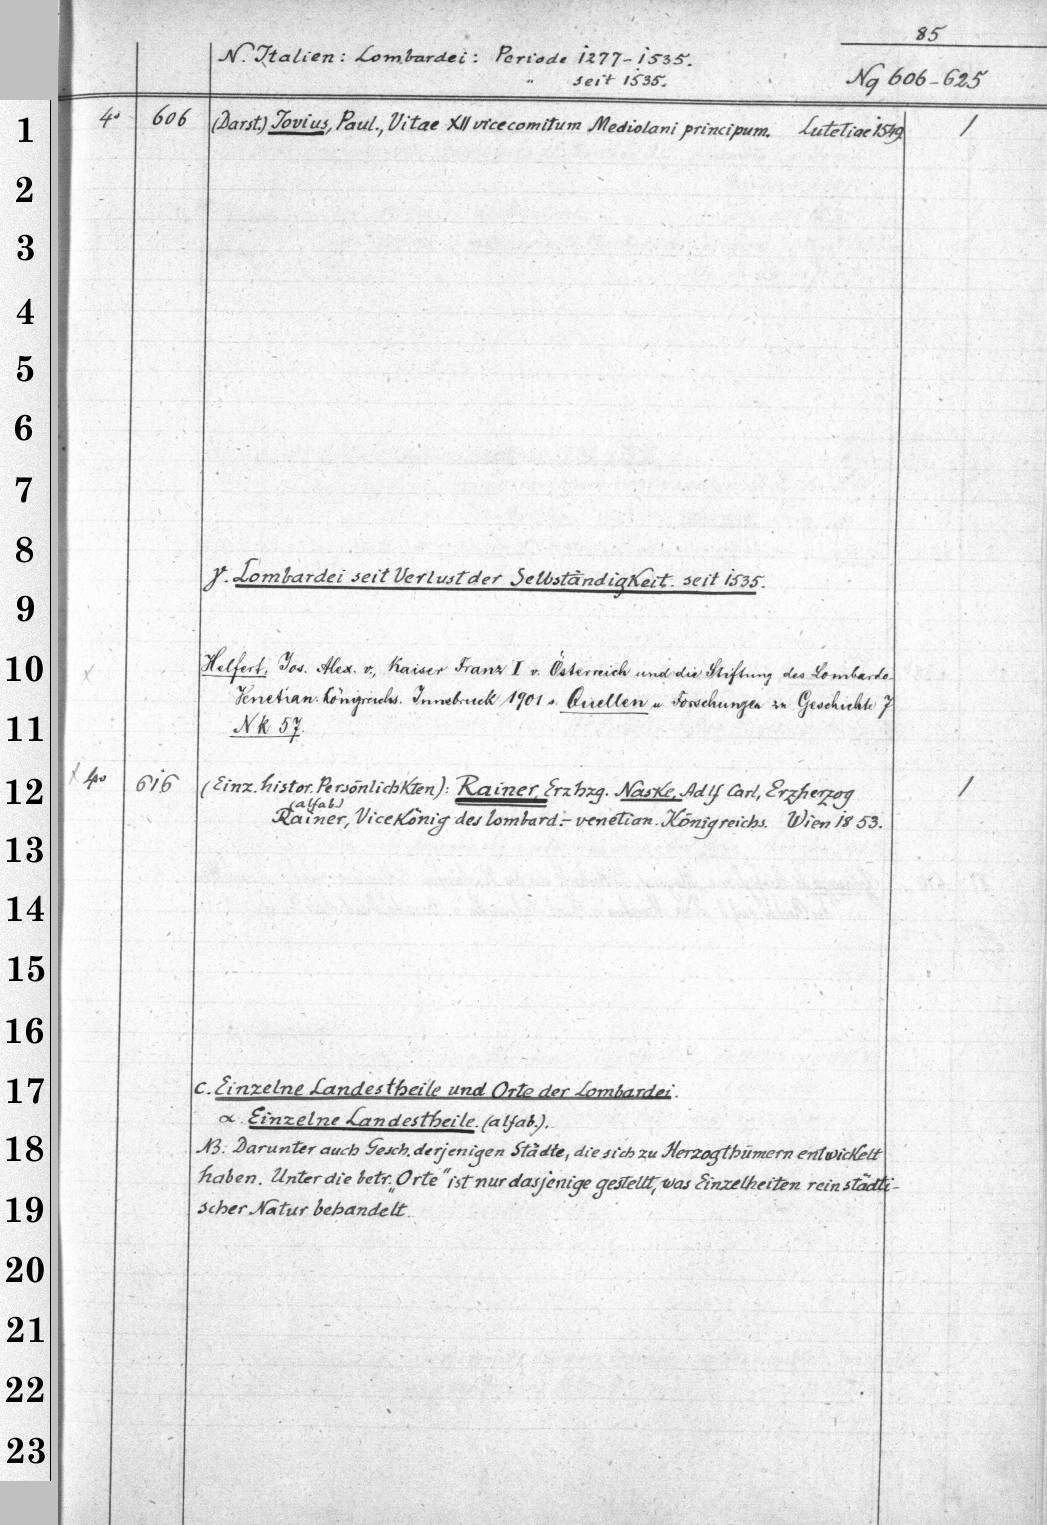 85
N. Italien: Lombardei: Periode 1277-1535.
" seit 1535.
Ng 606-625
1 4° 606 (Darst.) Jovius, Paul., Vitae XII vicecomitum Mediolani principum. Lutetiae 1549 1
2
3
4
5
6
7
8
γ. Lombardei seit Verlust der Selbständigkeit seit 1535.
9
10 Helfert, Jos. Alex. v., Kaiser Franz I v. Österreich und die Stiftung des Lombardo-
Venetian. Königreichs. Innsbruck 1901 s. Quellen u Forschungen zu Geschichte 7
11 Nk 57.
12 x 4° 616 (Einz. histor. Persönlichkten): Rainer, Erzhzg. Naske, Adlf Carl, Erzherzog 1
(alfab.)
Rainer, Vicekönig des lombard.-venetian. Königreichs. Wien 1853.
13
14
15
16
17 c. Einzelne Landestheile und Orte der Lombardei.
α. Einzelne Landestheile. (alfab.).
18 NB. Darunter auch Gesch. derjenigen Städte, die sich zu Herzogthümern entwickelt
haben. Unter die betr. „Orte" ist nur dasjenige gestellt, was Einzelheiten rein städti-
19 scher Natur behandelt.
20
21
22
23